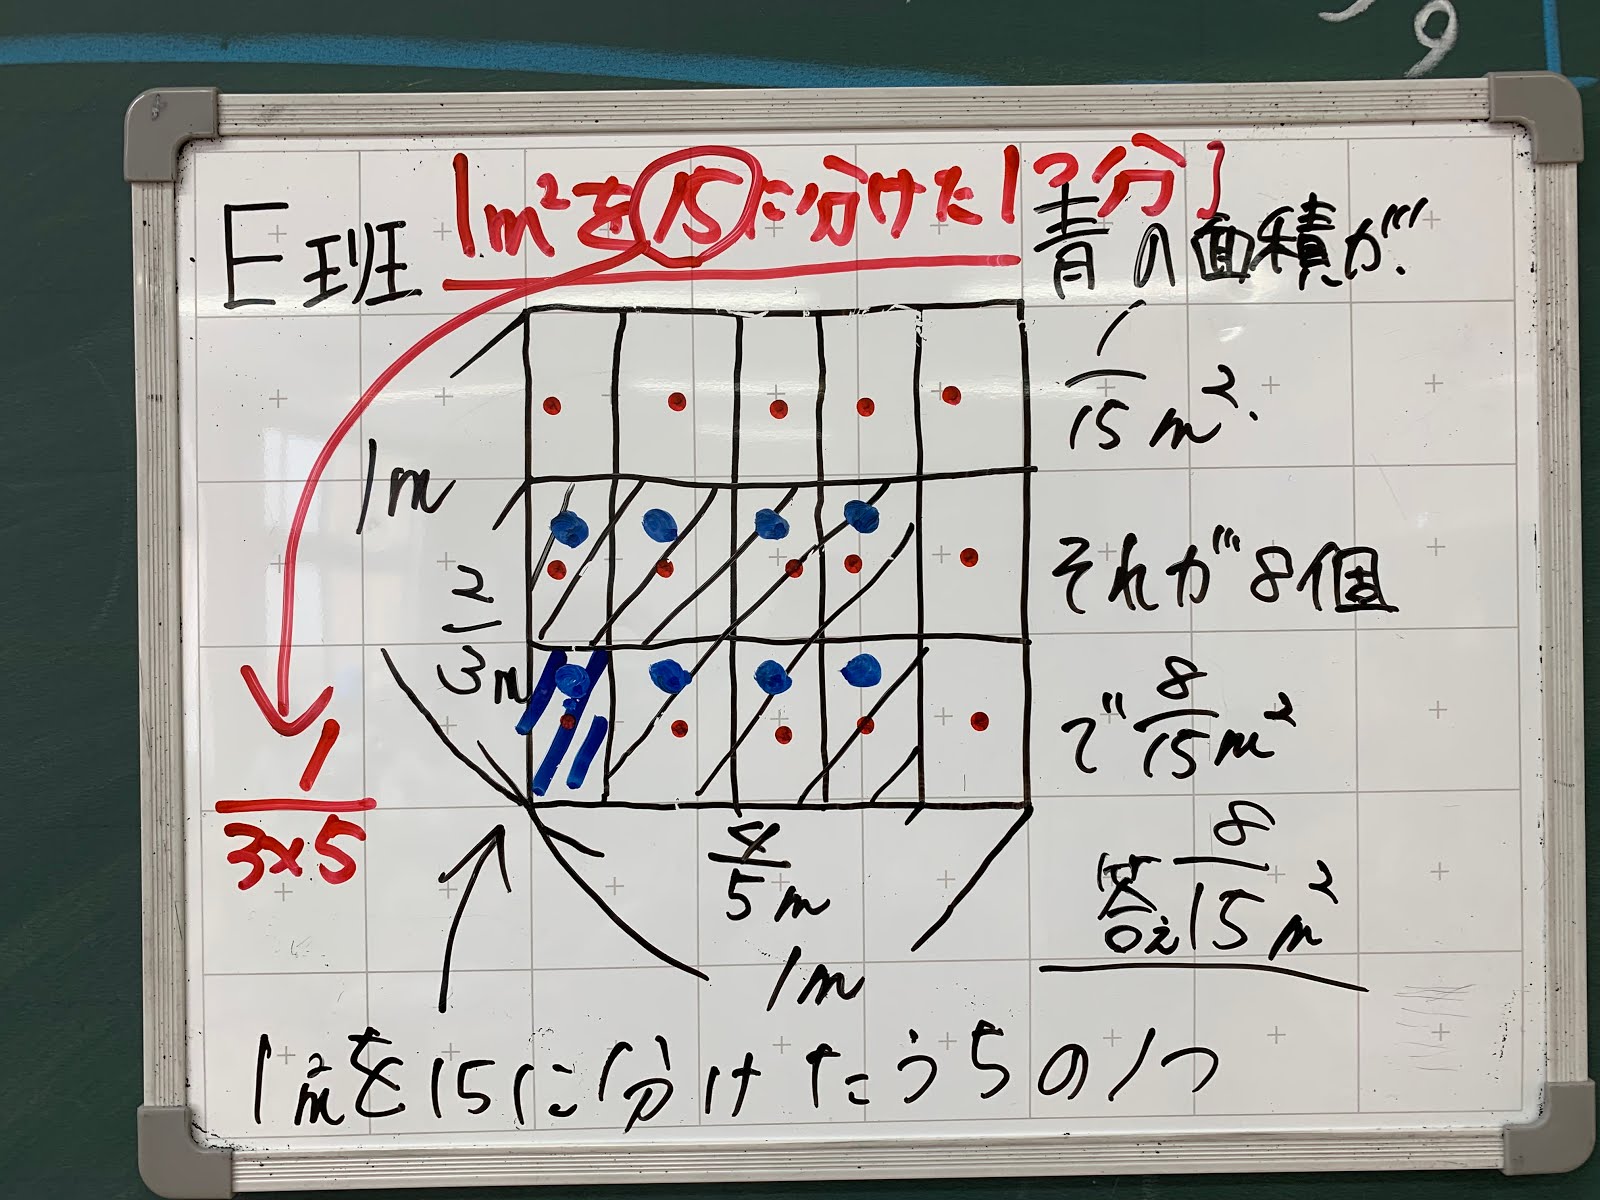 9
1m²を15に分けた1つ分
E班
青の面積が
1/15 m².
1m
それが8個
2/3 m
で 8/15 m²
1/3×5
4/5 m
答え 8/15 m²
1m
1m²を15に分けたうちの1つ